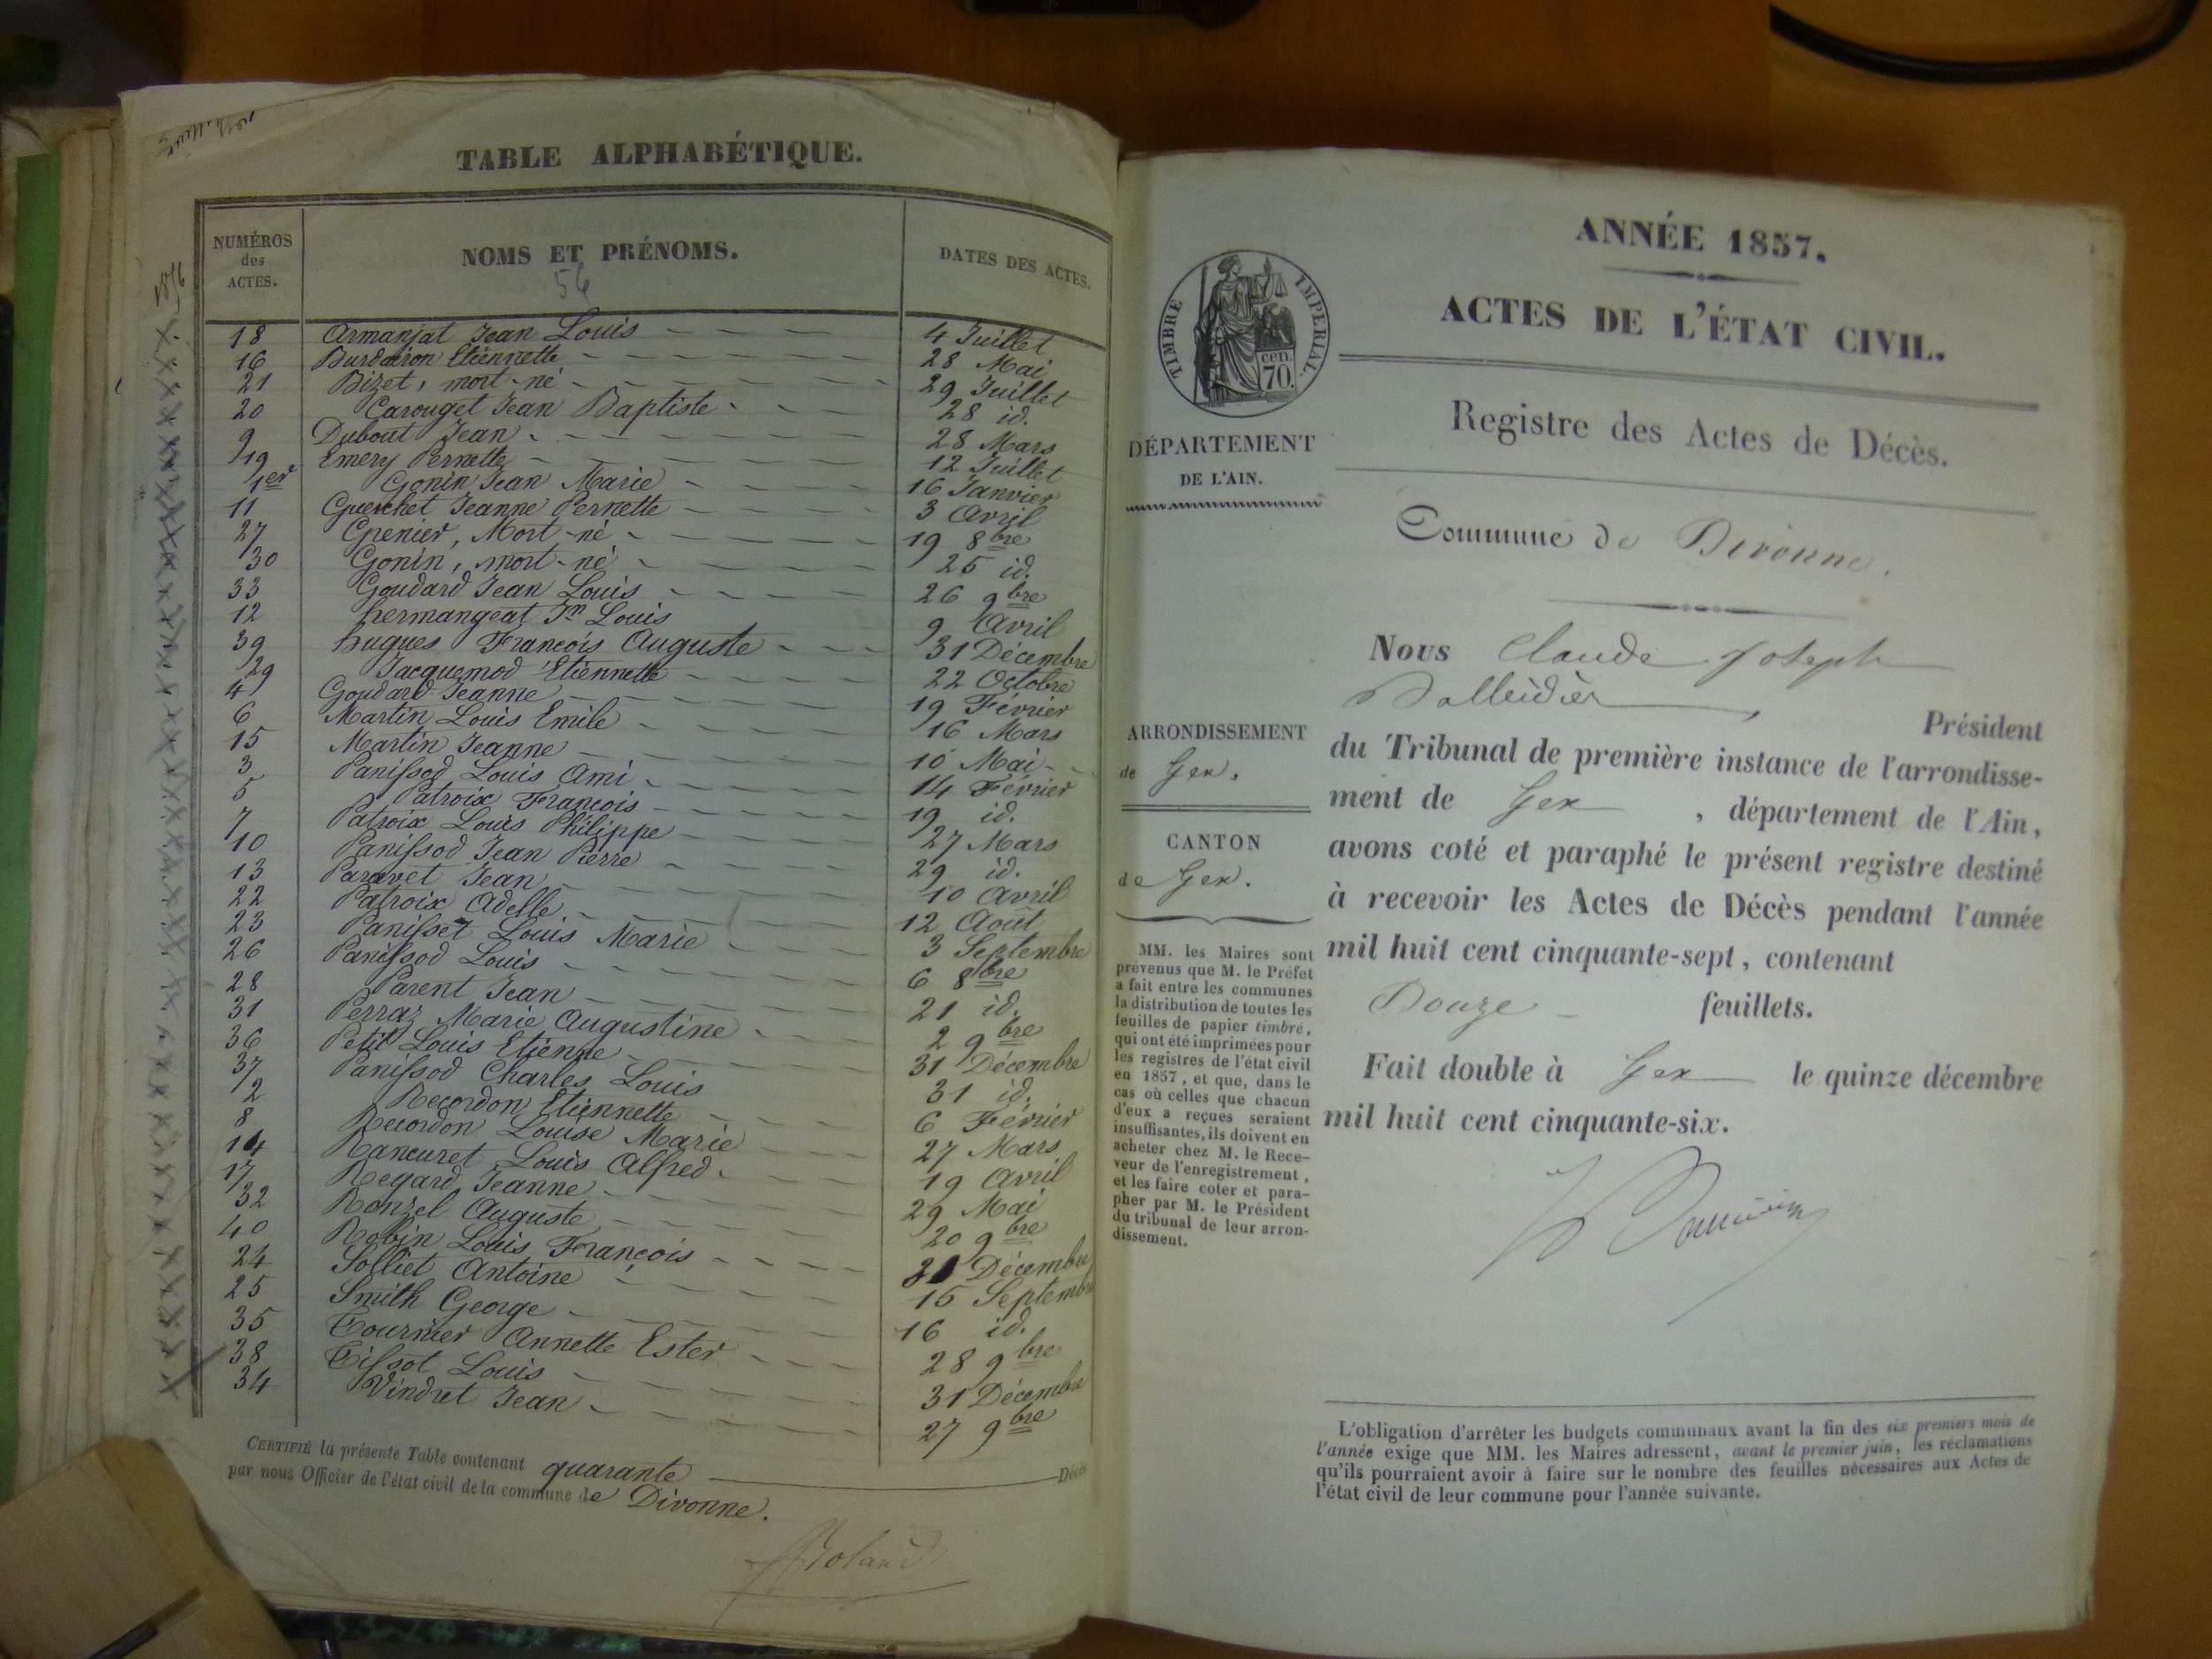 TABLE ALPHABÉTIQUE.
NUMÉROS des ACTES.
NOMS ET PRÉNOMS.
DATES DES ACTES.
56
1856
18 Armanjat Jean Louis 4 Juillet
16 Burdairon Etiennette 28 Mai
21 Bizet, mort-né 29 Juillet
20 Carouget Jean Baptiste 28 id.
9 Dubout Jean 28 Mars
19 Emery Pernette 12 Juillet
1er Gonin Jean Marie 16 Janvier
11 Guerchet Jeanne Pernette 3 Avril
27 Grenier, Mort-né 19 8bre
30 Gonin, mort-né 25 id.
33 Goudard Jean Louis 26 9bre
12 hermangeat Jn Louis 9 Avril
39 hugues François Auguste 31 Décembre
29 Jacquemod Etiennette 22 Octobre
4 Goudard Jeanne 19 Février
6 Martin Louis Emile 16 Mars
15 Martin Jeanne 10 Mai
3 Panissod Louis Ami 14 Février
5 Patroix François 19 id.
7 Patroix Louis Philippe 27 Mars
10 Panissod Jean Pierre 29 id.
13 Paravet Jean 10 Avril
22 Patroix Adelle 12 Août
23 Panisset Louis Marie 3 Septembre
26 Panissod Louis 6 8bre
28 Parent Jean 21 id.
31 Perraz Marie Augustine 2 9bre
36 Petit Louis Etienne 31 Décembre
37 Panissod Charles Louis 31 id.
2 Recordon Etiennette 6 Février
8 Recordon Louise Marie 27 Mars
14 Rancuret Louis Alfred 19 Avril
17 Regard Jeanne 29 Mai
32 Ronzel Auguste 20 9bre
40 Robin Louis François 31 Décembre
24 Solliet Antoine 15 Septembre
25 Smith George 16 id.
35 Tournier Annette Ester 28 9bre
38 Tissot Louis 31 Décembre
34 Vindret Jean 27 9bre
CERTIFIÉ la présente Table contenant quarante Décès
par nous Officier de l'état civil de la commune de Divonne.
Roland
ANNÉE 1857.
ACTES DE L'ÉTAT CIVIL.
TIMBRE IMPERIAL.
cen. 70.
Registre des Actes de Décès.
DÉPARTEMENT
DE L'AIN.
Commune de Divonne.
ARRONDISSEMENT
de Gex.
CANTON
de Gex.
MM. les Maires sont
prévenus que M. le Préfet
a fait entre les communes
la distribution de toutes les
feuilles de papier timbré,
qui ont été imprimées pour
les registres de l'état civil
en 1857, et que, dans le
cas où celles que chacun
d'eux a reçues seraient
insuffisantes, ils doivent en
acheter chez M. le Rece-
veur de l'enregistrement,
et les faire coter et para-
pher par M. le Président
du tribunal de leur arron-
dissement.
Nous Claude Joseph
Président
du Tribunal de première instance de l'arrondisse-
ment de Gex, département de l'Ain,
avons coté et paraphé le présent registre destiné
à recevoir les Actes de Décès pendant l'année
mil huit cent cinquante-sept, contenant
Douze feuillets.
Fait double à Gex le quinze décembre
mil huit cent cinquante-six.
L'obligation d'arrêter les budgets communaux avant la fin des six premiers mois de
l'année exige que MM. les Maires adressent, avant le premier juin, les réclamations
qu'ils pourraient avoir à faire sur le nombre des feuilles nécessaires aux Actes de
l'état civil de leur commune pour l'année suivante.